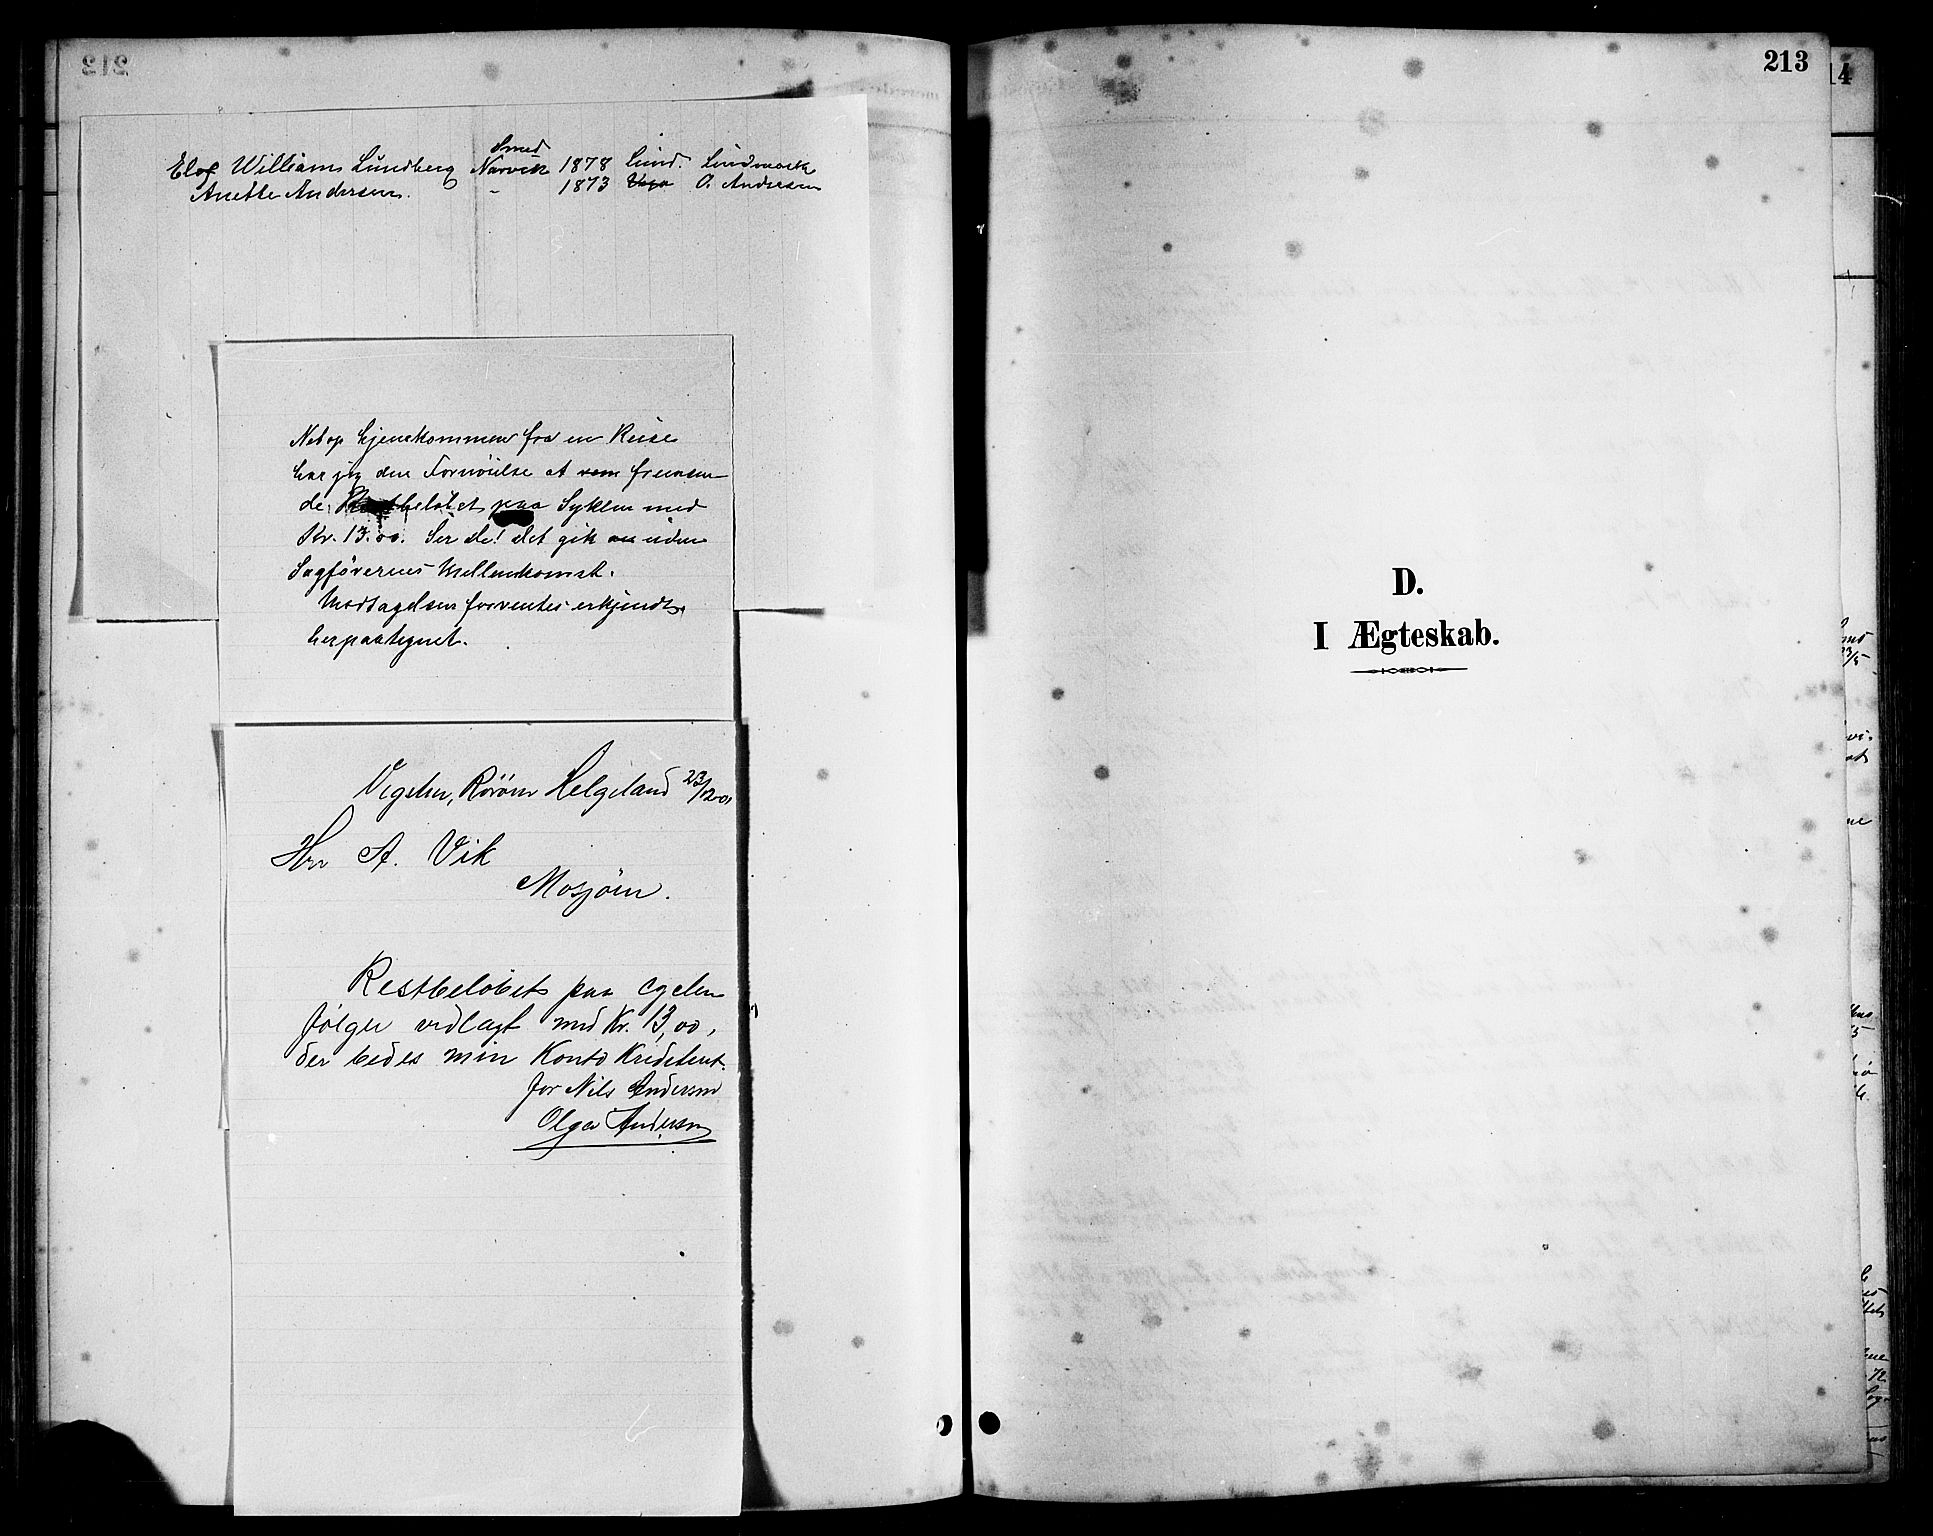 Smed
Elof William Lundberg Narvik 1878 Lind. Lindmark
Anette Andersen. - 1873 Vega O. Andersen
Netop hjemkommen fra en Reise
har jeg den Fornöielse at fremsen
de Restbeløbet paa Syklen med
Kr. 13.00. Ser de! det gik uden
Sagförernes Mellemkomst.
Modtagelsen forventes erkjendt
herpaategnet.
Helgeland 23/12 01
Hrr A. Vik
Mosjöen.
Restbeløbet paa cyclen
følger vedlagt med Kr. 13,00,
der bedes min Konto Krediteret.
for Nils Andersen
Olga Andersen
213
D.
I Ægteskab.
14